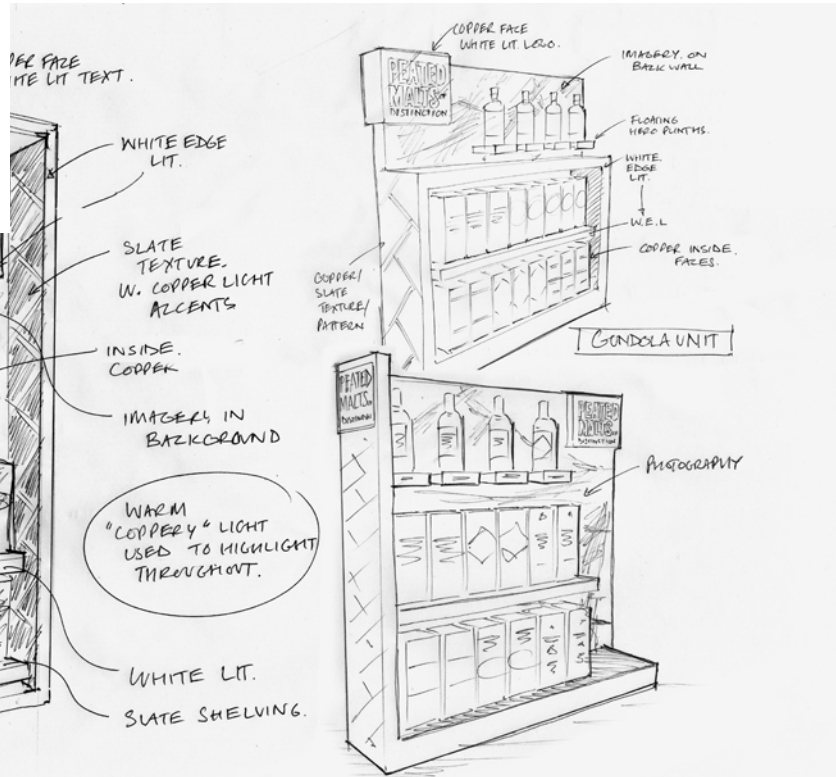 PER FACE
ITE LIT TEXT.
WHITE EDGE
LIT.
SLATE
TEXTURE.
W. COPPER LIGHT
ACCENTS
INSIDE.
COPPER
IMAGERY IN
BACKGROUND
WARM
"COPPERY" LIGHT
USED TO HIGHLIGHT
THROUGHOUT.
WHITE LIT.
SLATE SHELVING.
COPPER FACE
WHITE LIT. LOGO.
IMAGERY. ON
BACK WALL
PEATED
MALTS OF
DISTINCTION
FLOATING
HERO PLINTHS.
WHITE.
EDGE
LIT.
W.E.L
COPPER INSIDE.
FACES.
COPPER/
SLATE
TEXTURE/
PATTERN
GONDOLA UNIT
PEATED
MALTS OF
DISTINCTION
PEATED
MALTS OF
DISTINCTION
PHOTOGRAPHY